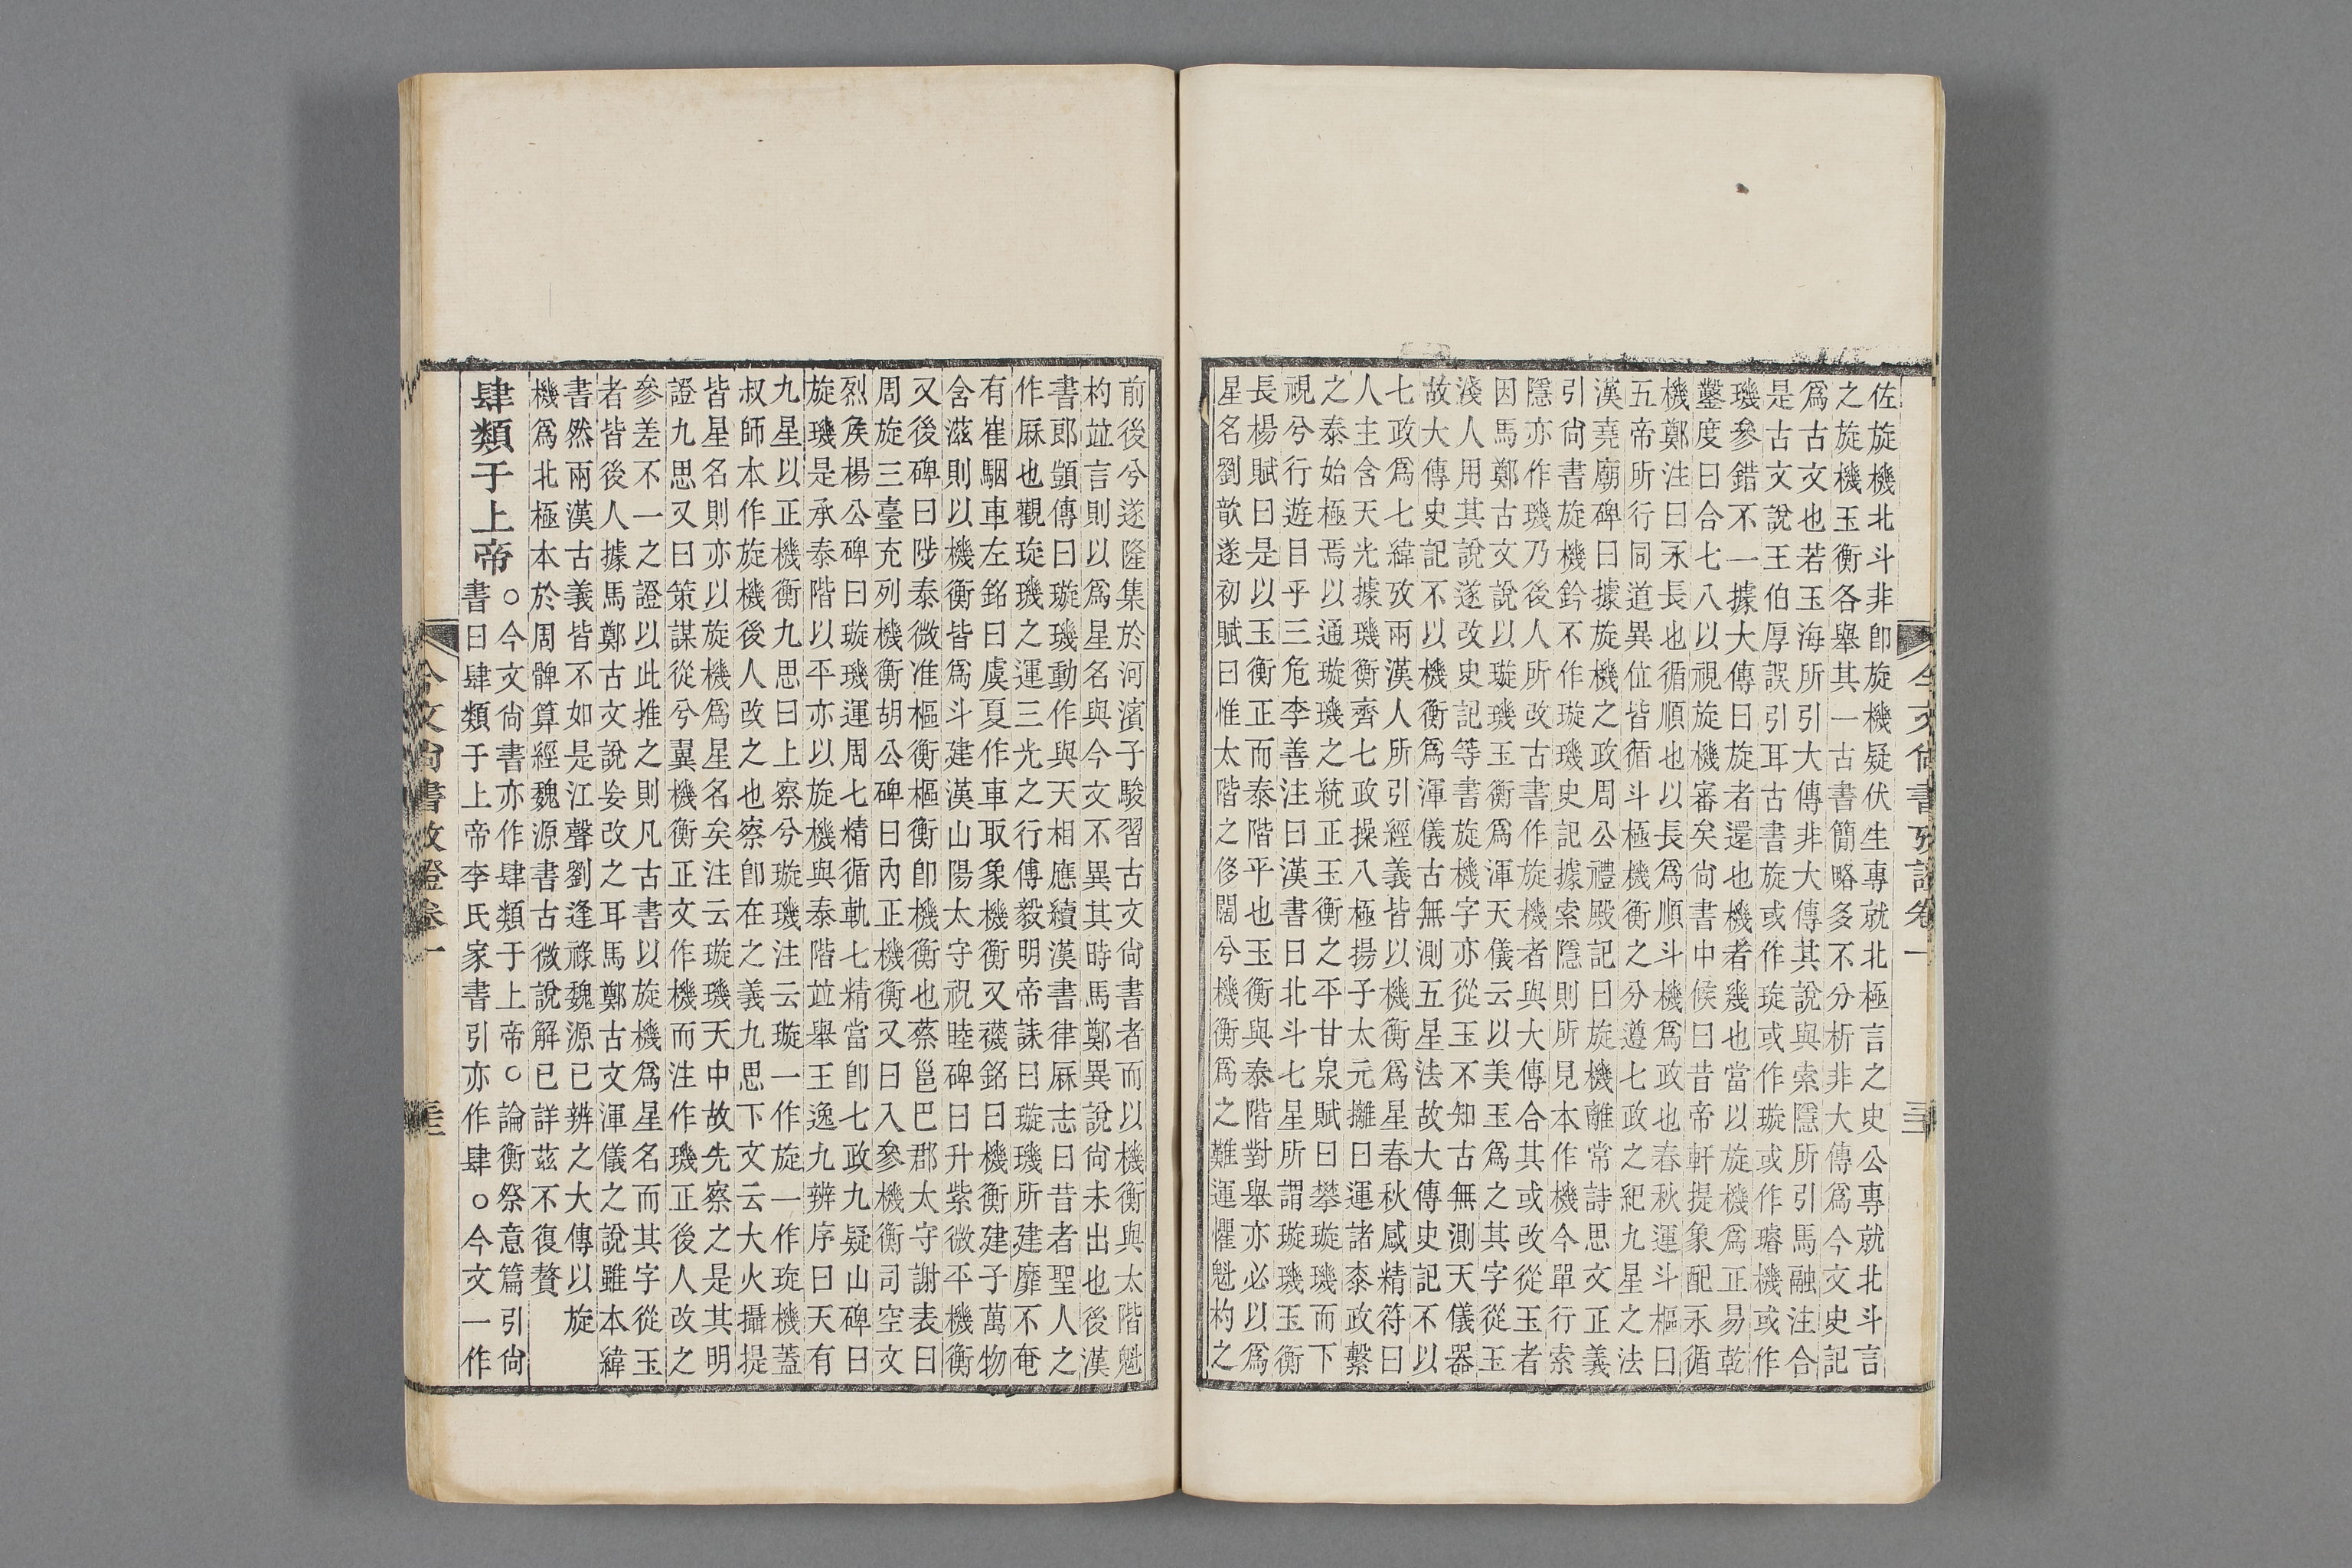 佐旋機北斗非卽旋機疑伏生專就北極言之史公專就北斗言
之旋機玉衡各舉其一古書簡略多不分析非大傳爲今文史記
爲古文也若玉海所引大傳非大傳其說與索隱所引馬融注合
是古文說王伯厚誤引耳古書旋或作琁或作璇或作璿機或作
璣參錯不一據大傳曰旋者還也機者幾也當以旋機爲正易乾
鑿度曰合七八以視旋機審矣尙書中候曰昔帝軒提象配永循
機鄭注曰永長也循順也以長爲順斗機爲政也春秋運斗樞曰
五帝所行同道異位皆循斗極機衡之分遵七政之紀九星之法
漢堯廟碑曰據旋機之政周公禮殿記曰旋機離常詩思文正義
引尙書旋機鈐不作璇璣史記據索隱則所見本作機今單行索
隱亦作璣乃後人所改古書作旋機者與大傳合其或改從玉者
因馬鄭古文說以璇璣玉衡爲渾天儀云以美玉爲之其字從玉
淺人用其說遂改史記等書旋機字亦從玉不知古無測天儀器
故大傳史記不以機衡爲渾儀古無測五星法故大傳史記不以
七政爲七緯攷兩漢人所引經義皆以機衡爲星春秋感精符曰
人主含天光據璣衡齊七政操八極揚子太元攡曰運諸桼政繫
之泰始極焉以通璇璣之統正玉衡之平甘泉賦曰攀璇璣而下
視兮行遊目乎三危李善注曰漢書曰北斗七星所謂璇璣玉衡
長楊賦曰是以玉衡正而泰階平也玉衡與泰階對舉亦必以爲
星名劉歆遂初賦曰惟太階之侈闊兮機衡爲之難運懼魁杓之
前後兮遂隆集於河濱子駿習古文尙書者而以機衡與太階魁
杓竝言則以爲星名與今文不異其時馬鄭異說尙未出也後漢
書郎顗傳曰璇璣動作與天相應續漢書律厤志曰昔者聖人之
作厤也觀琁璣之運三光之行傅毅明帝誄曰璇璣所建靡不奄
有崔駰車左銘曰虞夏作車取象機衡又襪銘曰機衡建子萬物
含滋則以機衡皆爲斗建漢山陽太守祝睦碑曰升紫微平機衡
又後碑曰陟泰微准樞衡樞衡卽機衡也蔡邕巴郡太守謝表曰
周旋三臺充列機衡胡公碑曰內正機衡又曰入參機衡司空文
烈矦楊公碑曰璇璣運周七精循軌七精當卽七政九疑山碑曰
旋璣是承泰階以平亦以旋機與泰階竝舉王逸九辨序曰天有
九星以正機衡九思曰上察兮璇璣注云璇一作旋一作琁機蓋
叔師本作旋機後人改之也察卽在之義九思下文云大火攝提
皆星名則亦以旋機爲星名矣注云璇璣天中故先察之是其明
證九思又曰策謀從兮翼機衡正文作機而注作璣正後人改之
參差不一之證以此推之則凡古書以旋機爲星名而其字從玉
者皆後人據馬鄭古文說妄改之耳馬鄭古文渾儀之說雖本緯
書然兩漢古義皆不如是江聲劉逢祿魏源已辨之大傳以旋
機爲北極本於周髀算經魏源書古微說解已詳茲不復贅
肆類于上帝
○今文尙書亦作肆類于上帝○論衡祭意篇引尙
書曰肆類于上帝李氏家書引亦作肆○今文一作